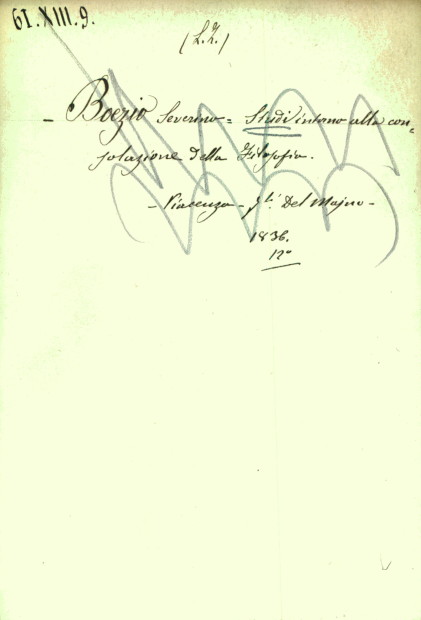 61.XIII.9.
(L.Z.)
- Boezio Severino = Studi intorno alla con=
solazione della Filosofia.
- Piacenza - Del Majno -
1836.
12º